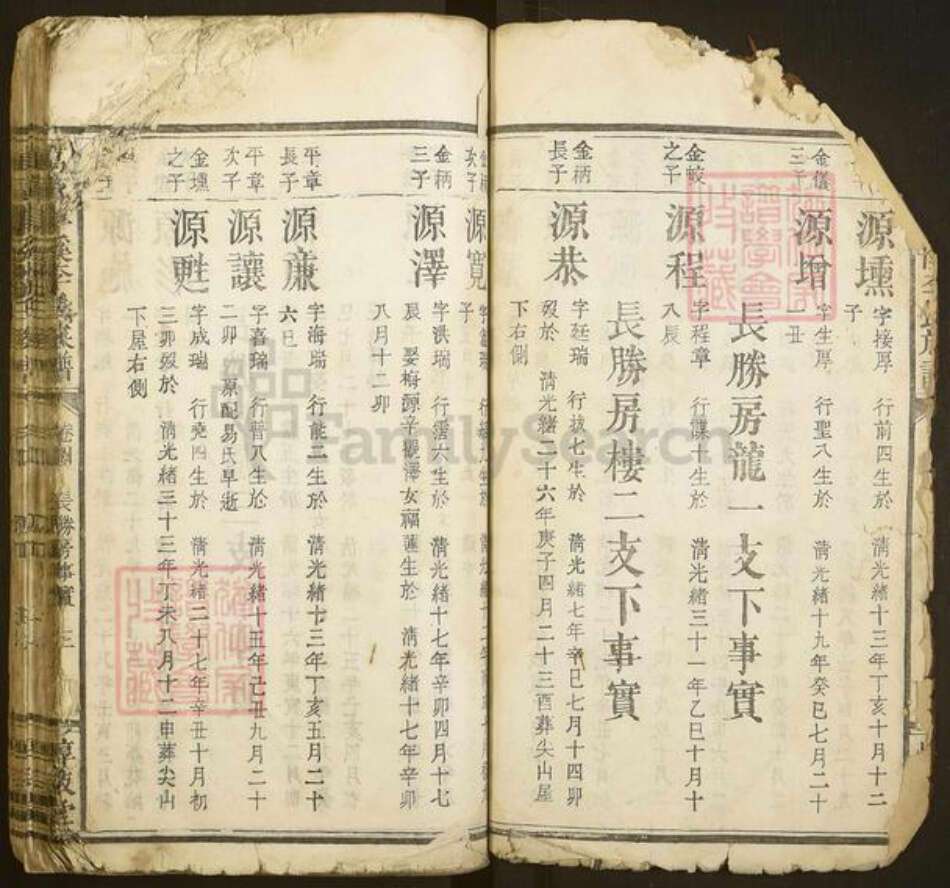 源壎
字接厚 行前四生於 淸光緒十三年丁亥十月十二
子
金儀
三子
源增
字生厚 行聖八生於 淸光緒十九年癸巳七月二十
一丑
長勝房龍一支下事實
金蛟
之子
源程
字程章 行謀十生於 淸光緒三十一年乙巳十月十
八辰
長勝房樓二支下事實
金柄
長子
源恭
字廷瑞 行拔七生於 淸光緒七年辛巳七月十四卯
歿於 淸光緒二十六年庚子四月二十三酉葬尖山屋
下右側
次子
源寬
子
金柄
三子
源澤
字洪瑞 行 六生於 淸光緒十七年辛卯四月十七
辰 娶梅源辛觀澤女福蓮生於 淸光緒十七年辛卯
八月十二卯
平章
長子
源廉
字海瑞 行能二生於 淸光緒十三年丁亥五月二十
六巳
平章
次子
源讓
字喜瑞 行晉八生於 淸光緒十五年己丑九月二十
二卯 原配易氏早逝
金壎
之子
源甦
字成瑞 行堯四生於 淸光緒二十七年辛丑十月初
三卯歿於 淸光緒三十三年丁未八月十二申葬尖山
下屋右側
卷四
長勝房事實
FamilySearch